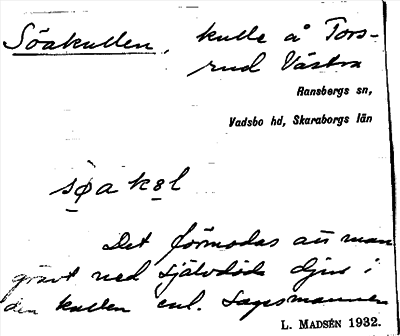 Söakullen, kulle å Tors-
rud Västra
Ransbergs sn,
Vadsbo hd, Skaraborgs län
søakəl
Det förmodas att man
grävt ned självdöda djur i
den kullen enl. sagesmannen
L. MADSÉN 1932.